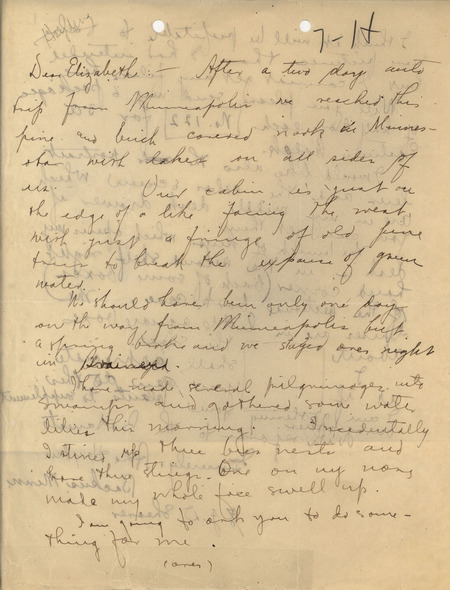 7-14
Dear Elisabeth:- After a two day auto
trip from Minneapolis we reached this
pine and birch covered nook in Minnes-
ota with lakes on all sides of
us. Our cabin is just on
the edge of a lake facing the west
with just a fringe of old pine
trees to break the expanse of green
water.
We should have been only one day
on the way from Minneapolis but
a spring broke and we stayed over night
in Brainerd.
I have made several pilgrimages into
swamps and gathered some water
lilies this morning. Incidentally
I stirred up three bees nests and
have three stings. One on my nose
made my whole face swell up.
I am going to ask you to do some-
thing for me.
(over)